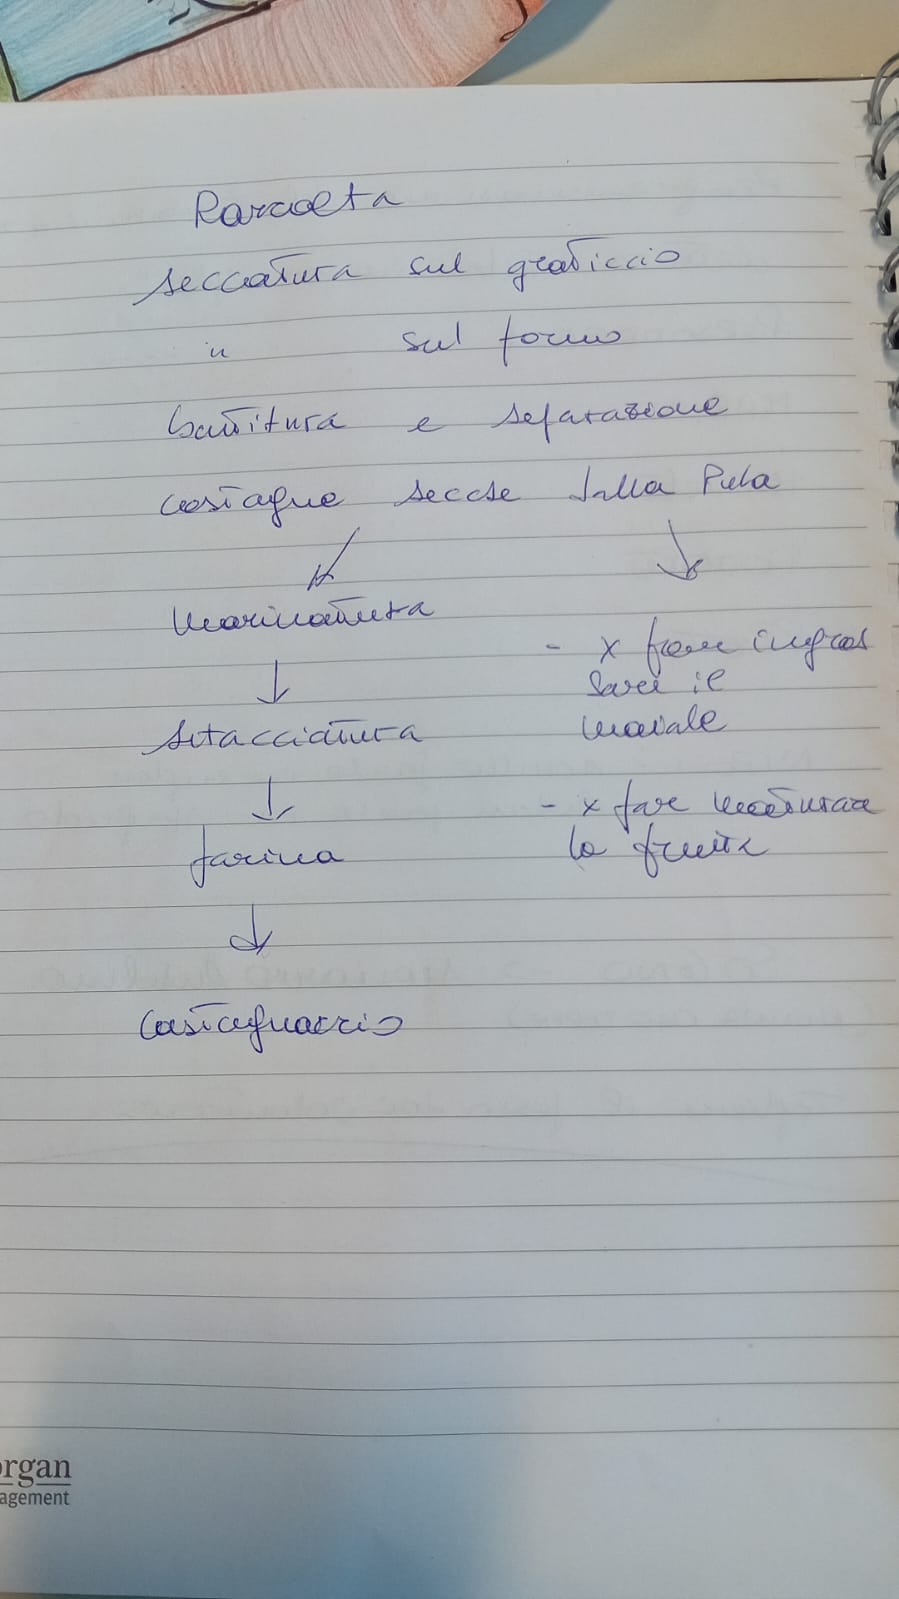 Raccolta
seccatura sul graticcio
" sul forno
battitura e separazione
castagne secche dalla Pula
macinatura
- x fare ingras
sare il
setacciatura
maiale
- x fare maturare
la frutta
farina
castagnaccio
organ
agement